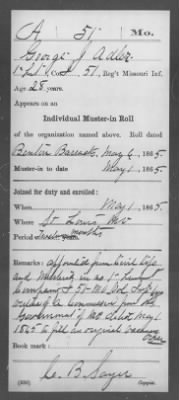 A 51 Mo.
George J. Adler
1" Lt., Co. A, 51, Reg't Missouri Inf.
Age 28 years.
Appears on an
Individual Muster-in Roll
of the organization named above. Roll dated
Benton Barracks, May 6, 1865.
Muster-in to date May 1, 1865.
Joined for duty and enrolled:
When May 1, 1865.
Where St. Louis Mo
Period Twelve months
Remarks: appointed from Civil life
and Mustered in as 1" Lieut
Company A 51" Mo Vol Inf by
virtue of a Commission from the
Government of Mo. dated May 1
1865 to fill an original vacancy
Book mark:
C. B. Sayer
Copyist.